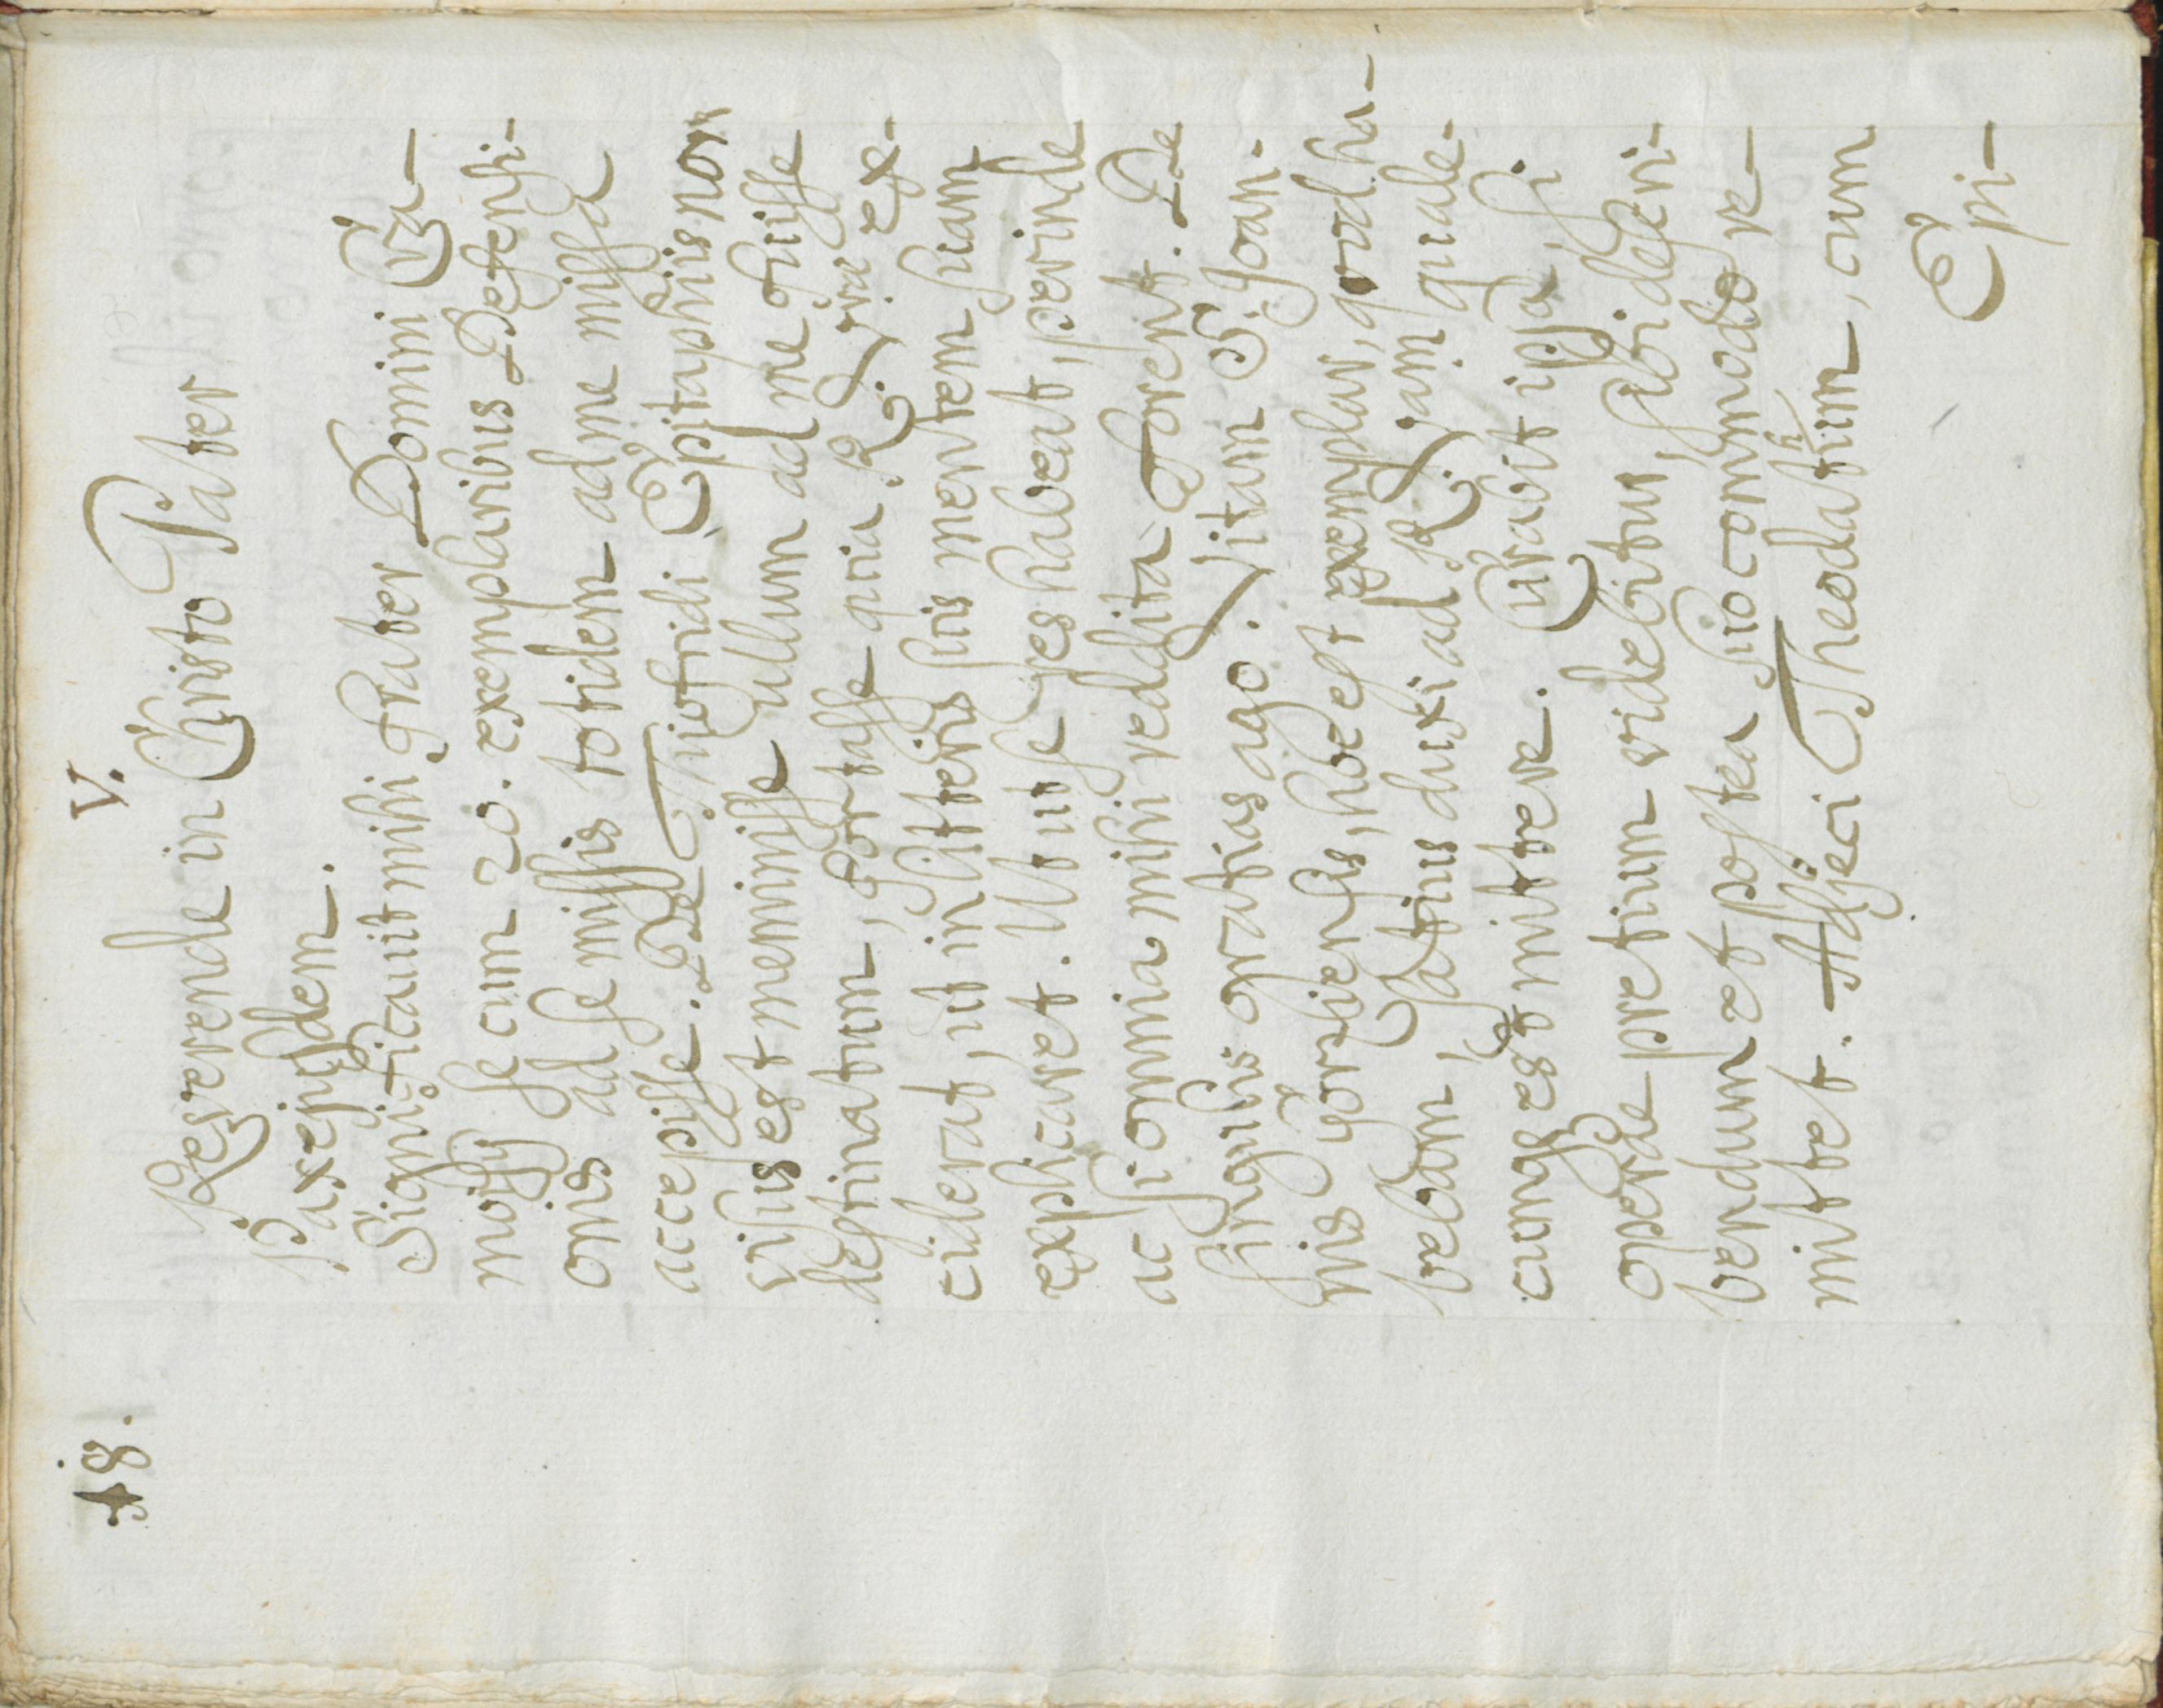 18.
V.
Reverende in Christo Pater
P. Rosweyde.
Significauit mihi Frater Domini Ca-
moisij se cum 20. exemplaribus Defensi-
onis ad se missis totidem ad me missa
accepisse. De Thiofridi Epitaphiis non
visus est meminisse ullum ad me fuisse
destinatum, fortasse quia R. Vrae ex-
ciderat, ut in litteris suis mentem suam
explicaret. Ut ut se res habeat, perinde
ac si omnia mihi reddita forent. De
singulis gratias ago. Vitam S. Joan-
nis Gorziensis, hoc est exemplar, quod ha-
bebam, satius duxi ad R. V. jam quale-
cumq; est mittere. Curabit ipsa, si
operae pretium videbitur, sibi descri-
bendum et postea suo commodo re-
mittet. Adjeci Theodatum, cum
Epi-